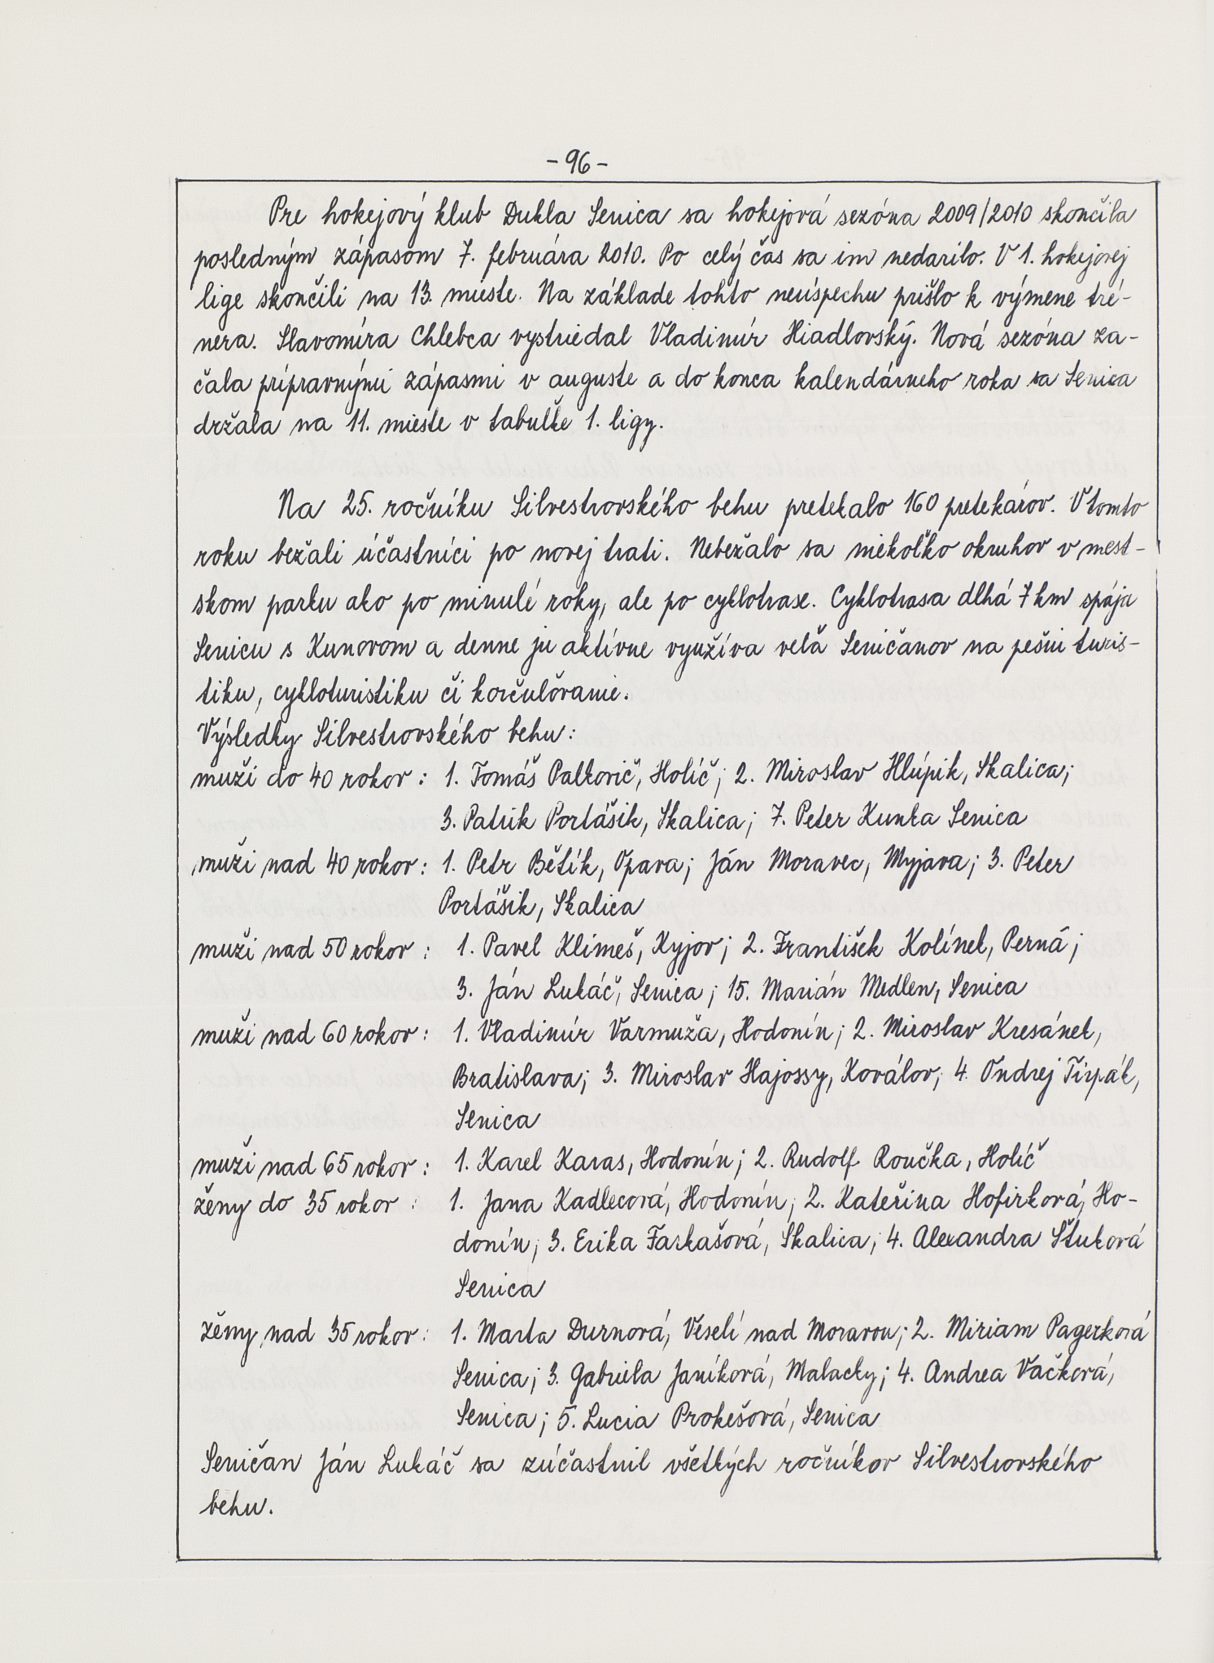 - 96 -
Pre hokejový klub Dukla Senica sa hokejová sezóna 2009/2010 skončila
posledným zápasom 7. februára 2010. Po celý čas sa im nedarilo. V 1. hokejovej
lige skončili na 13. mieste. Na základe tohto neúspechu prišlo k výmene tré-
nera. Slavomíra Chlebca vystriedal Vladimír Hiadlovský. Nová sezóna za-
čala prípravnými zápasmi v auguste a do konca kalendárneho roka sa Senica
držala na 11. mieste v tabuľke 1. ligy.
Na 25. ročníku Silvestrovského behu pretekalo 160 pretekárov. V tomto
roku bežali účastníci po novej trati. Nebežalo sa niekoľko okruhov v mest-
skom parku ako po minulé roky, ale po cyklotrase. Cyklotrasa dlhá 7 km spája
Senicu s Kunovom a denne ju aktívne využíva veľa Seničanov na pešiu turis-
tiku, cykloturistiku či korčuľovanie.
Výsledky Silvestrovského behu:
muži do 40 rokov: 1. Tomáš Palkovič, Holíč; 2. Miroslav Hlúpik, Skalica;
3. Patrik Portášik, Skalica; 7. Peter Kunka Senica
muži nad 40 rokov: 1. Petr Bětík, Opava; Ján Moravec, Myjava; 3. Peter
Portášik, Skalica
muži nad 50 rokov: 1. Pavel Klimeš, Kyjov; 2. František Kolínek, Perná;
3. Ján Lukáč, Senica; 15. Marián Medlen, Senica
muži nad 60 rokov: 1. Vladimír Varmuža, Hodonín; 2. Miroslav Kresánek,
Bratislava; 3. Miroslav Hajossy, Koválov; 4. Ondrej Tirpák,
Senica
muži nad 65 rokov: 1. Karel Karas, Hodonín; 2. Rudolf Roučka, Holíč
ženy do 35 rokov: 1. Jana Kadlecová, Hodonín; 2. Kateřina Hofirková, Ho-
donín; 3. Erika Farkašová, Skalica; 4. Alexandra Štuková
Senica
ženy nad 35 rokov: 1. Marta Durnová, Veselí nad Moravou; 2. Miriam Pagerková
Senica; 3. Gabriela Janíková, Malacky; 4. Andrea Vačková,
Senica; 5. Lucia Prokešová, Senica
Seničan Ján Lukáč sa zúčastnil všetkých ročníkov Silvestrovského
behu.